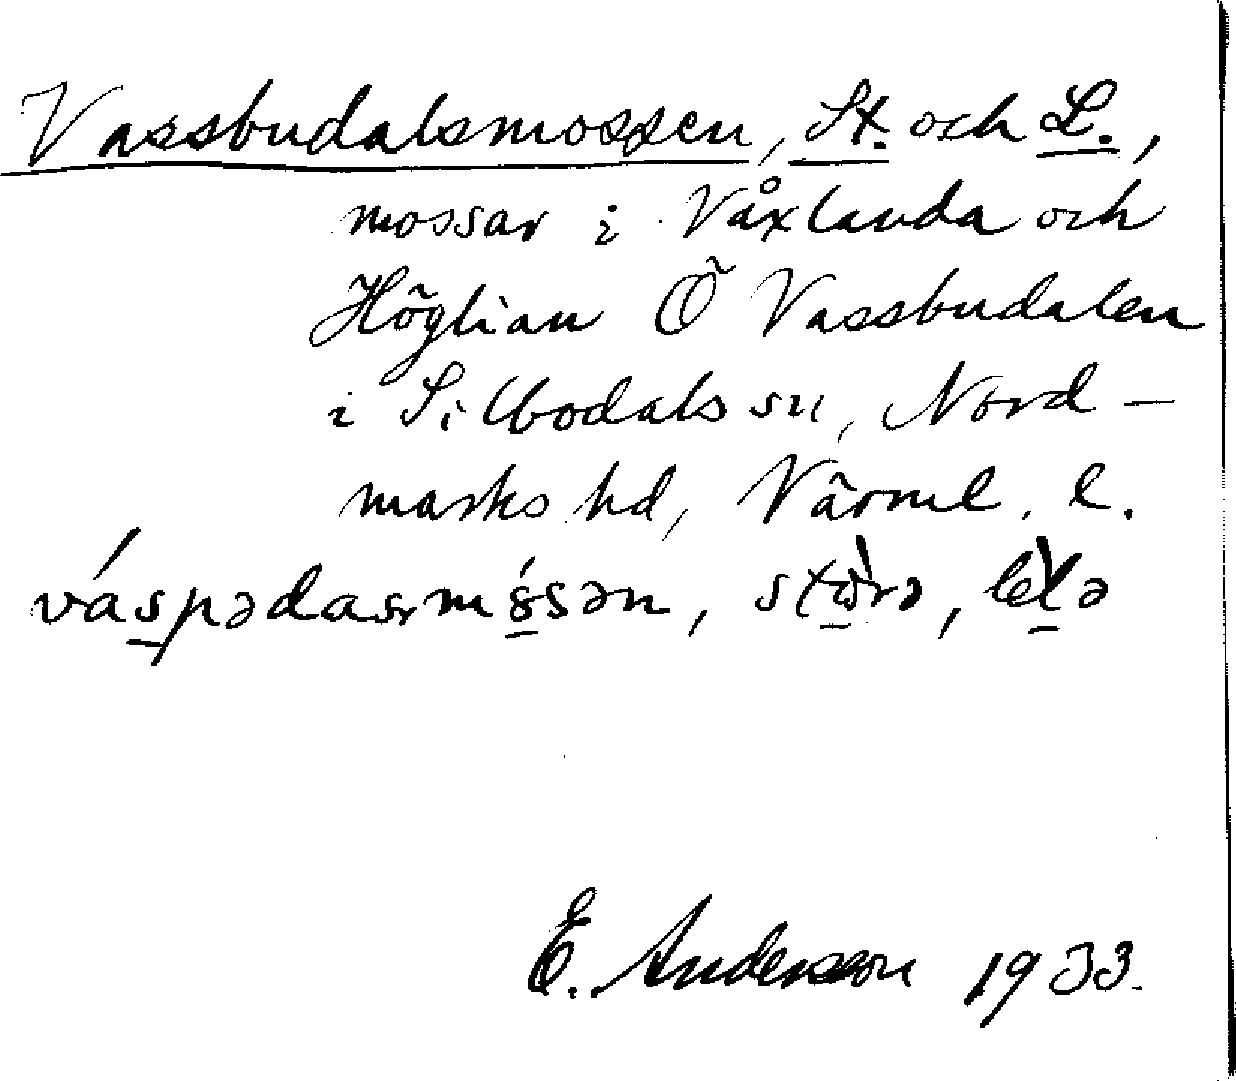 Vassbudalsmossen, St. och L.,
mossar i Våxlanda och
Höglian Ö Vassbudalen
i Silbodals sn, Nord-
marks hd, Värml. l.
E. Andersson 1933.